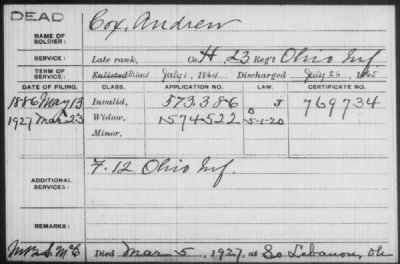 DEAD
NAME OF SOLDIER: Cox, Andrew
SERVICE: Late rank, Co. H, 23 Reg't Ohio Inf.
TERM OF SERVICE: Enlisted July 1, 1864 Discharged July 26, 1865
DATE OF FILING. CLASS. APPLICATION NO. LAW. CERTIFICATE NO.
1886 May 13 Invalid, 573386 J 769734
1927 Mar 23 Widow, 1574522 5-1-20
Minor,
ADDITIONAL SERVICES: F. 12 Ohio Inf.
REMARKS:
Died Mar 5, 1927, at So Lebanon, Oh